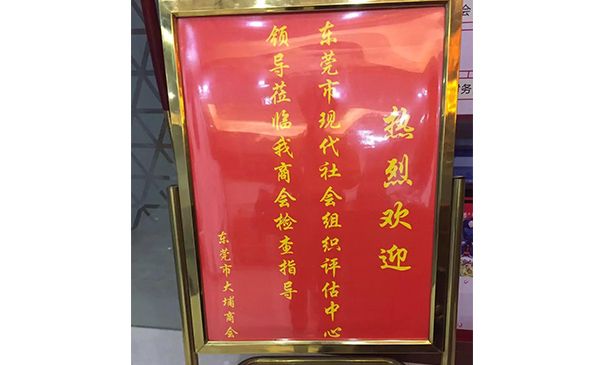 热烈欢迎
东莞市现代社会组织评估中心
领导莅临我商会检查指导
东莞市大埔商会
会
务